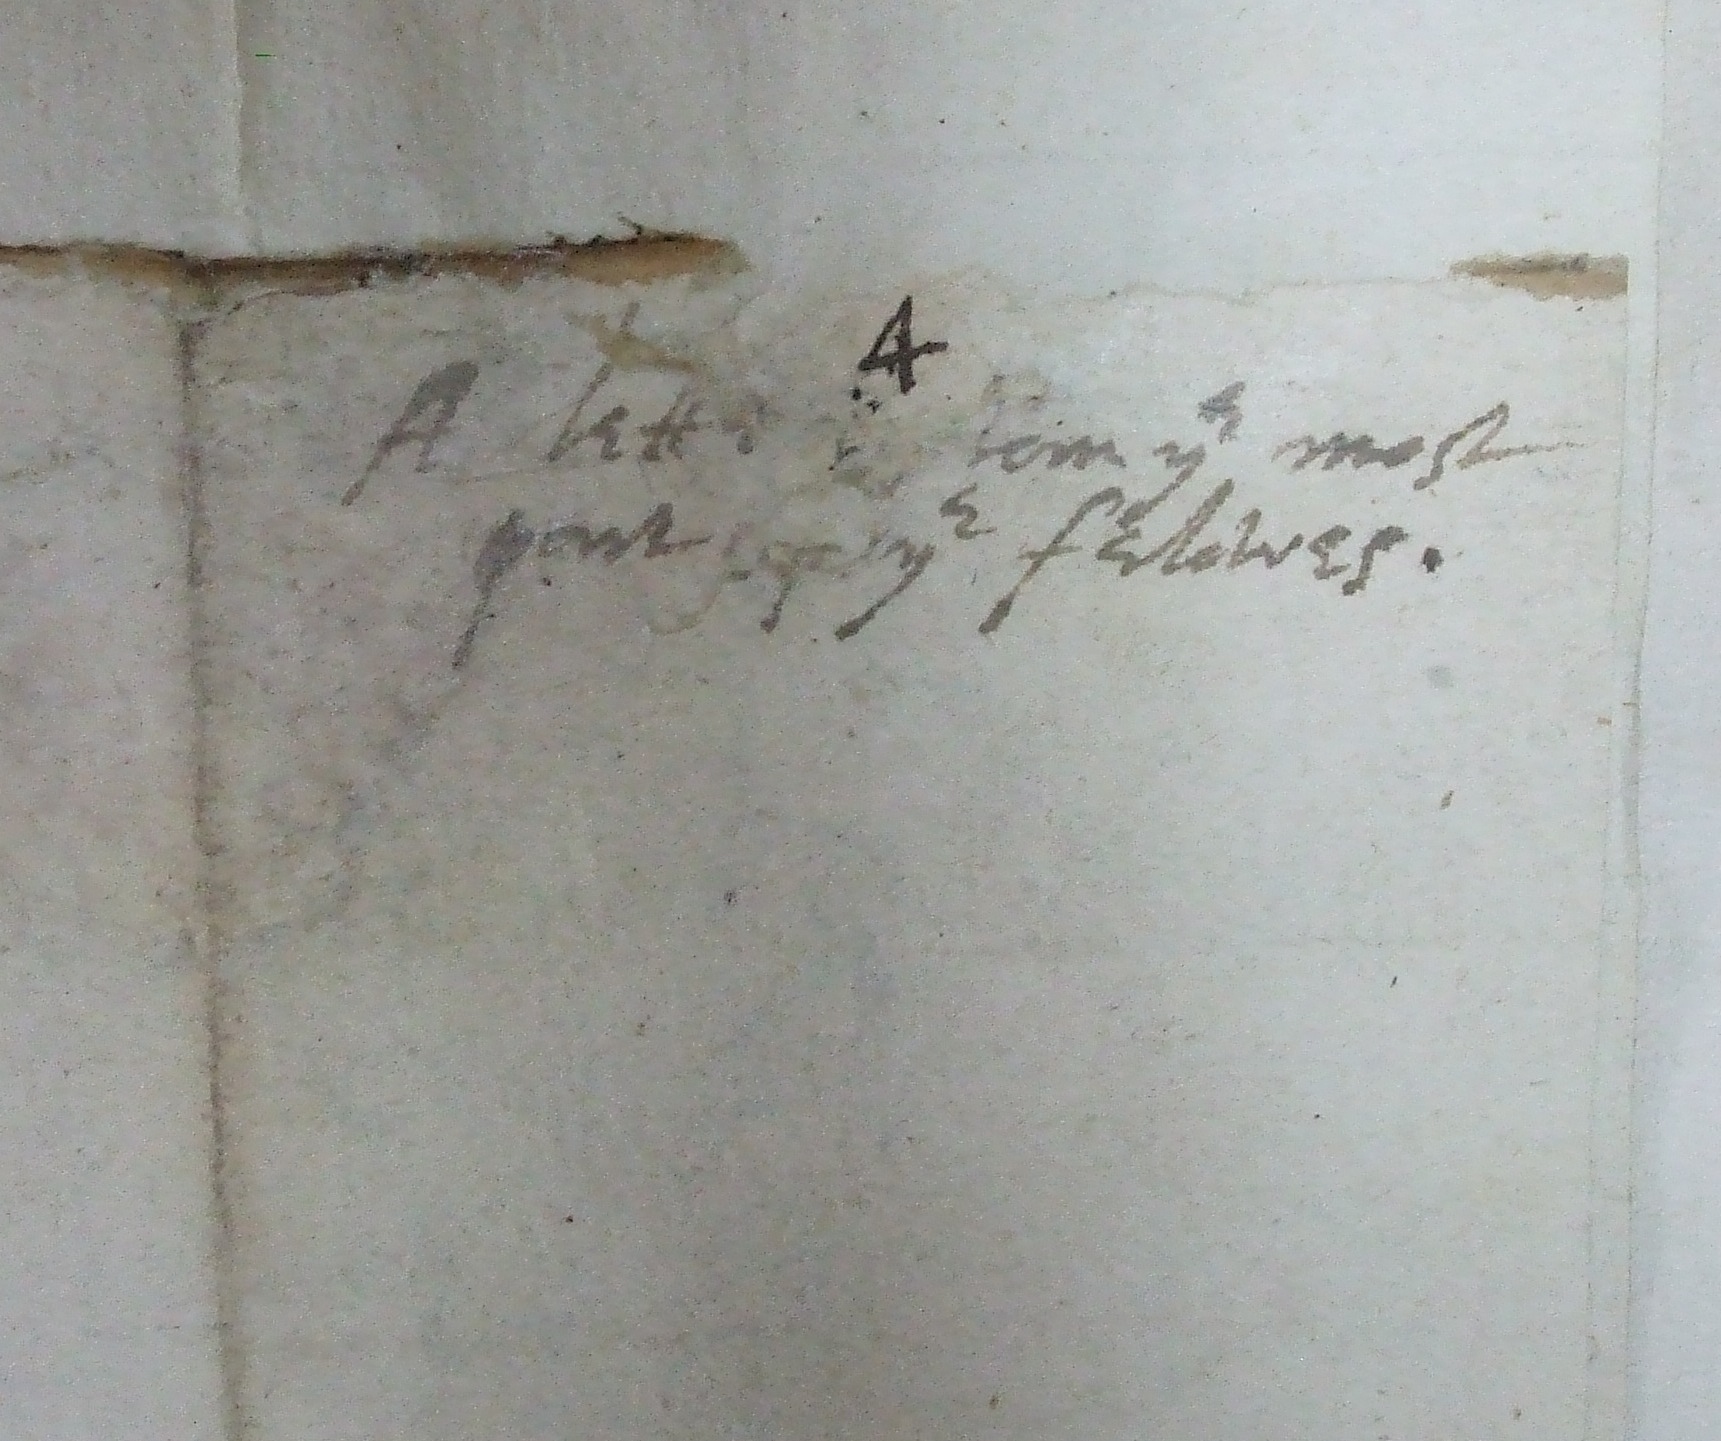 4
A lette from yᵉ most
part of yᵉ felowes.